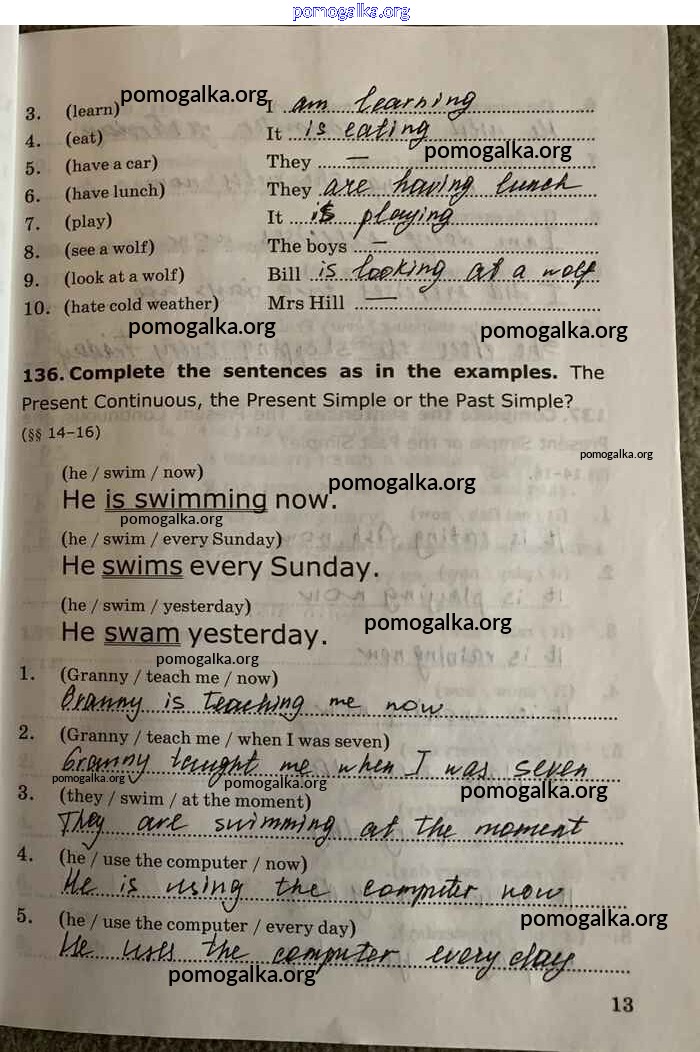 pomogalka.org
3. (learn) pomogalka.org I am learning
4. (eat) It is eating
5. (have a car) They — pomogalka.org
6. (have lunch) They are having lunch
7. (play) It is playing
8. (see a wolf) The boys —
9. (look at a wolf) Bill is looking at a wolf
10. (hate cold weather) Mrs Hill —
pomogalka.org pomogalka.org
136. Complete the sentences as in the examples. The
Present Continuous, the Present Simple or the Past Simple?
(§§ 14–16)
pomogalka.org
(he / swim / now)
He is swimming now.
pomogalka.org
pomogalka.org
(he / swim / every Sunday)
He swims every Sunday.
(he / swim / yesterday)
He swam yesterday.
pomogalka.org
pomogalka.org
1. (Granny / teach me / now)
Granny is teaching me now
2. (Granny / teach me / when I was seven)
Granny taught me when I was seven
pomogalka.org pomogalka.org pomogalka.org
3. (they / swim / at the moment)
They are swimming at the moment
4. (he / use the computer / now)
He is using the computer now
5. (he / use the computer / every day)
pomogalka.org
He uses the computer every day
pomogalka.org
13